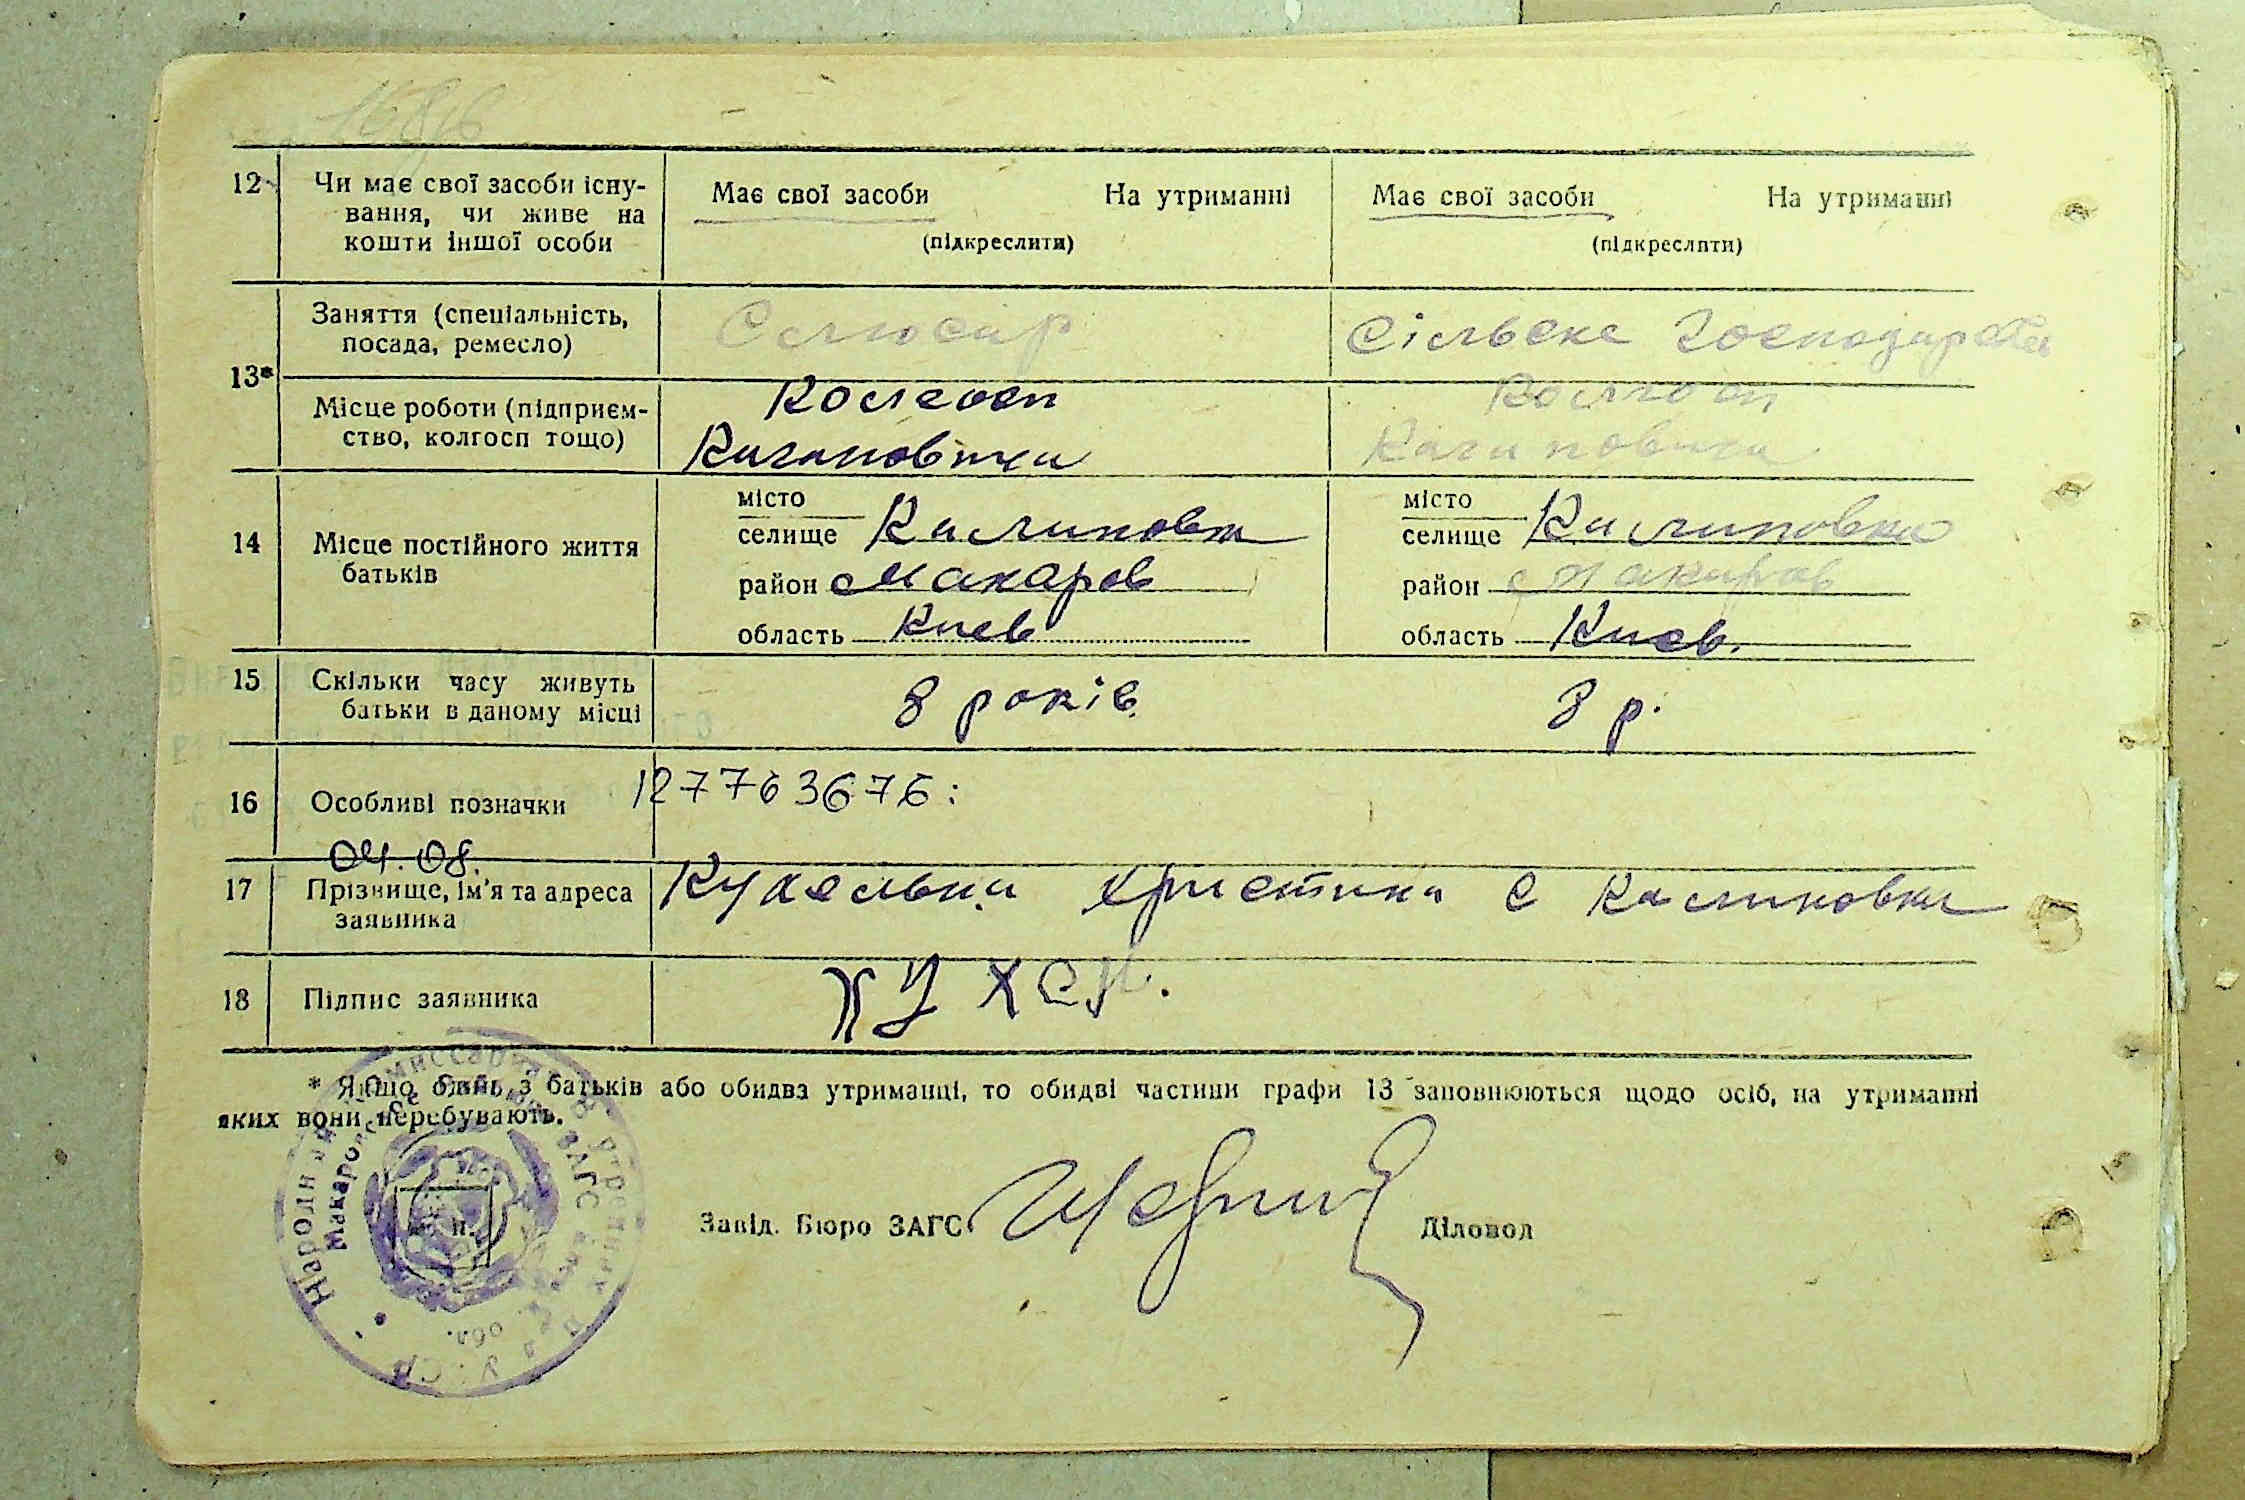 12 Чи має свої засоби існу- Має свої засоби На утриманні Має свої засоби На утриманні
вання, чи живе на
кошти іншої особи (підкреслити) (підкреслити)
Заняття (спеціальність, Слюсар Сільске господарство
посада, ремесло)
13*
Місце роботи (підприєм- Колгосп Колгосп
ство, колгосп тощо) Кагановича Кагановича
місто місто
14 Місце постійного життя селище Калиновка селище Калиновка
батьків район Макаров район Макаров
область Киев область Киев.
15 Скільки часу живуть 8 років. 8 р.
батьки в даному місці
16 Особливі позначки 127763676:
04.08.
17 Прізвище, ім'я та адреса Христина с Калиновка
заявника
18 Підпис заявника
* Якщо один з батьків або обидва утриманці, то обидві частини графи 13 заповнюються щодо осіб, на утриманні
яких вони перебувають.
Завід. Бюро ЗАГС Діловод